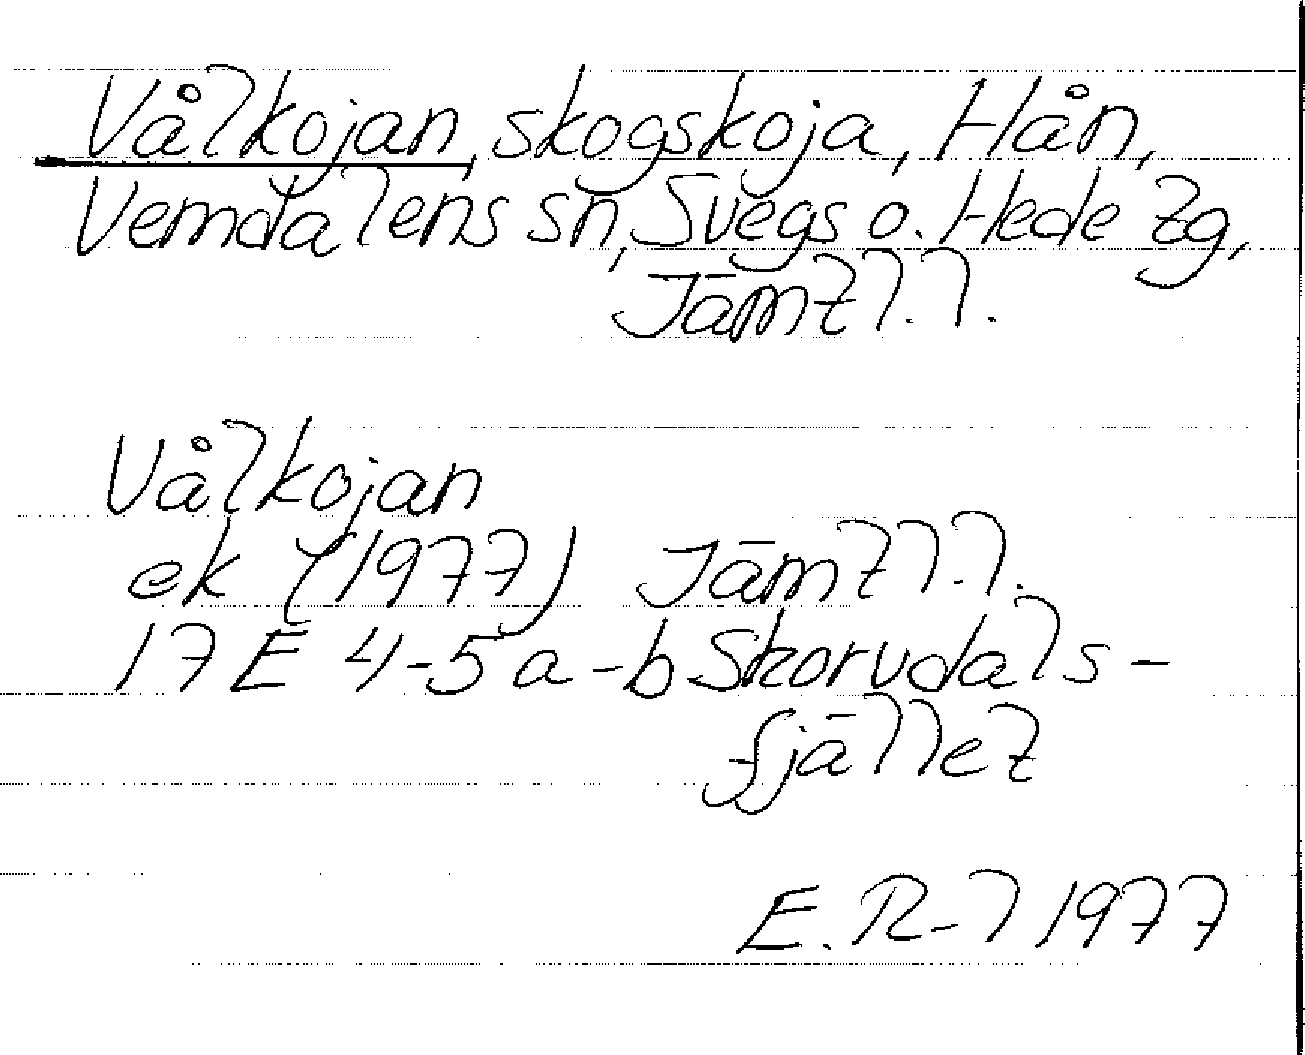 Vålkojan, skogskoja, Hån,
Vemdalens sn, Svegs o. Hede tg,
Jämtl.l.
Vålkojan
ek (1977) Jämtl.l.
17E 4-5 a-b Skorvdals-
fjället
E. R-l 1977